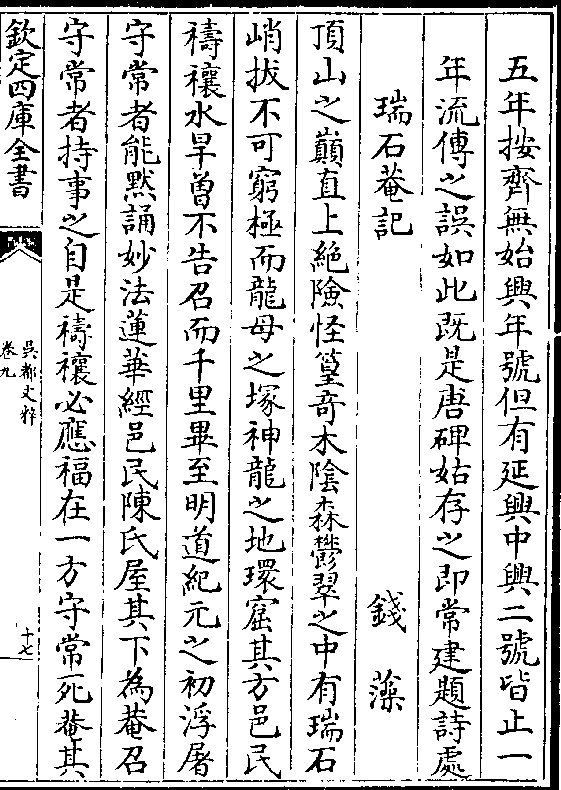 五年按齊無始興年號但有延興中興二號皆止一
年流傳之誤如此既是唐碑姑存之即常建題詩處
瑞石菴記　錢藻
頂山之巔直上絶險怪篁竒木陰森欝翠之中有瑞石
峭拔不可窮極而龍母之塚神龍之地環窟其方邑民
禱禳水旱曽不告召而千里畢至明道紀元之初浮屠
守常者能黙誦妙法蓮華經邑民陳氏屋其下為菴召
守常者持事之自是禱禳必應福在一方守常死菴其
欽定四庫全書
吳都文粹
卷九
十七